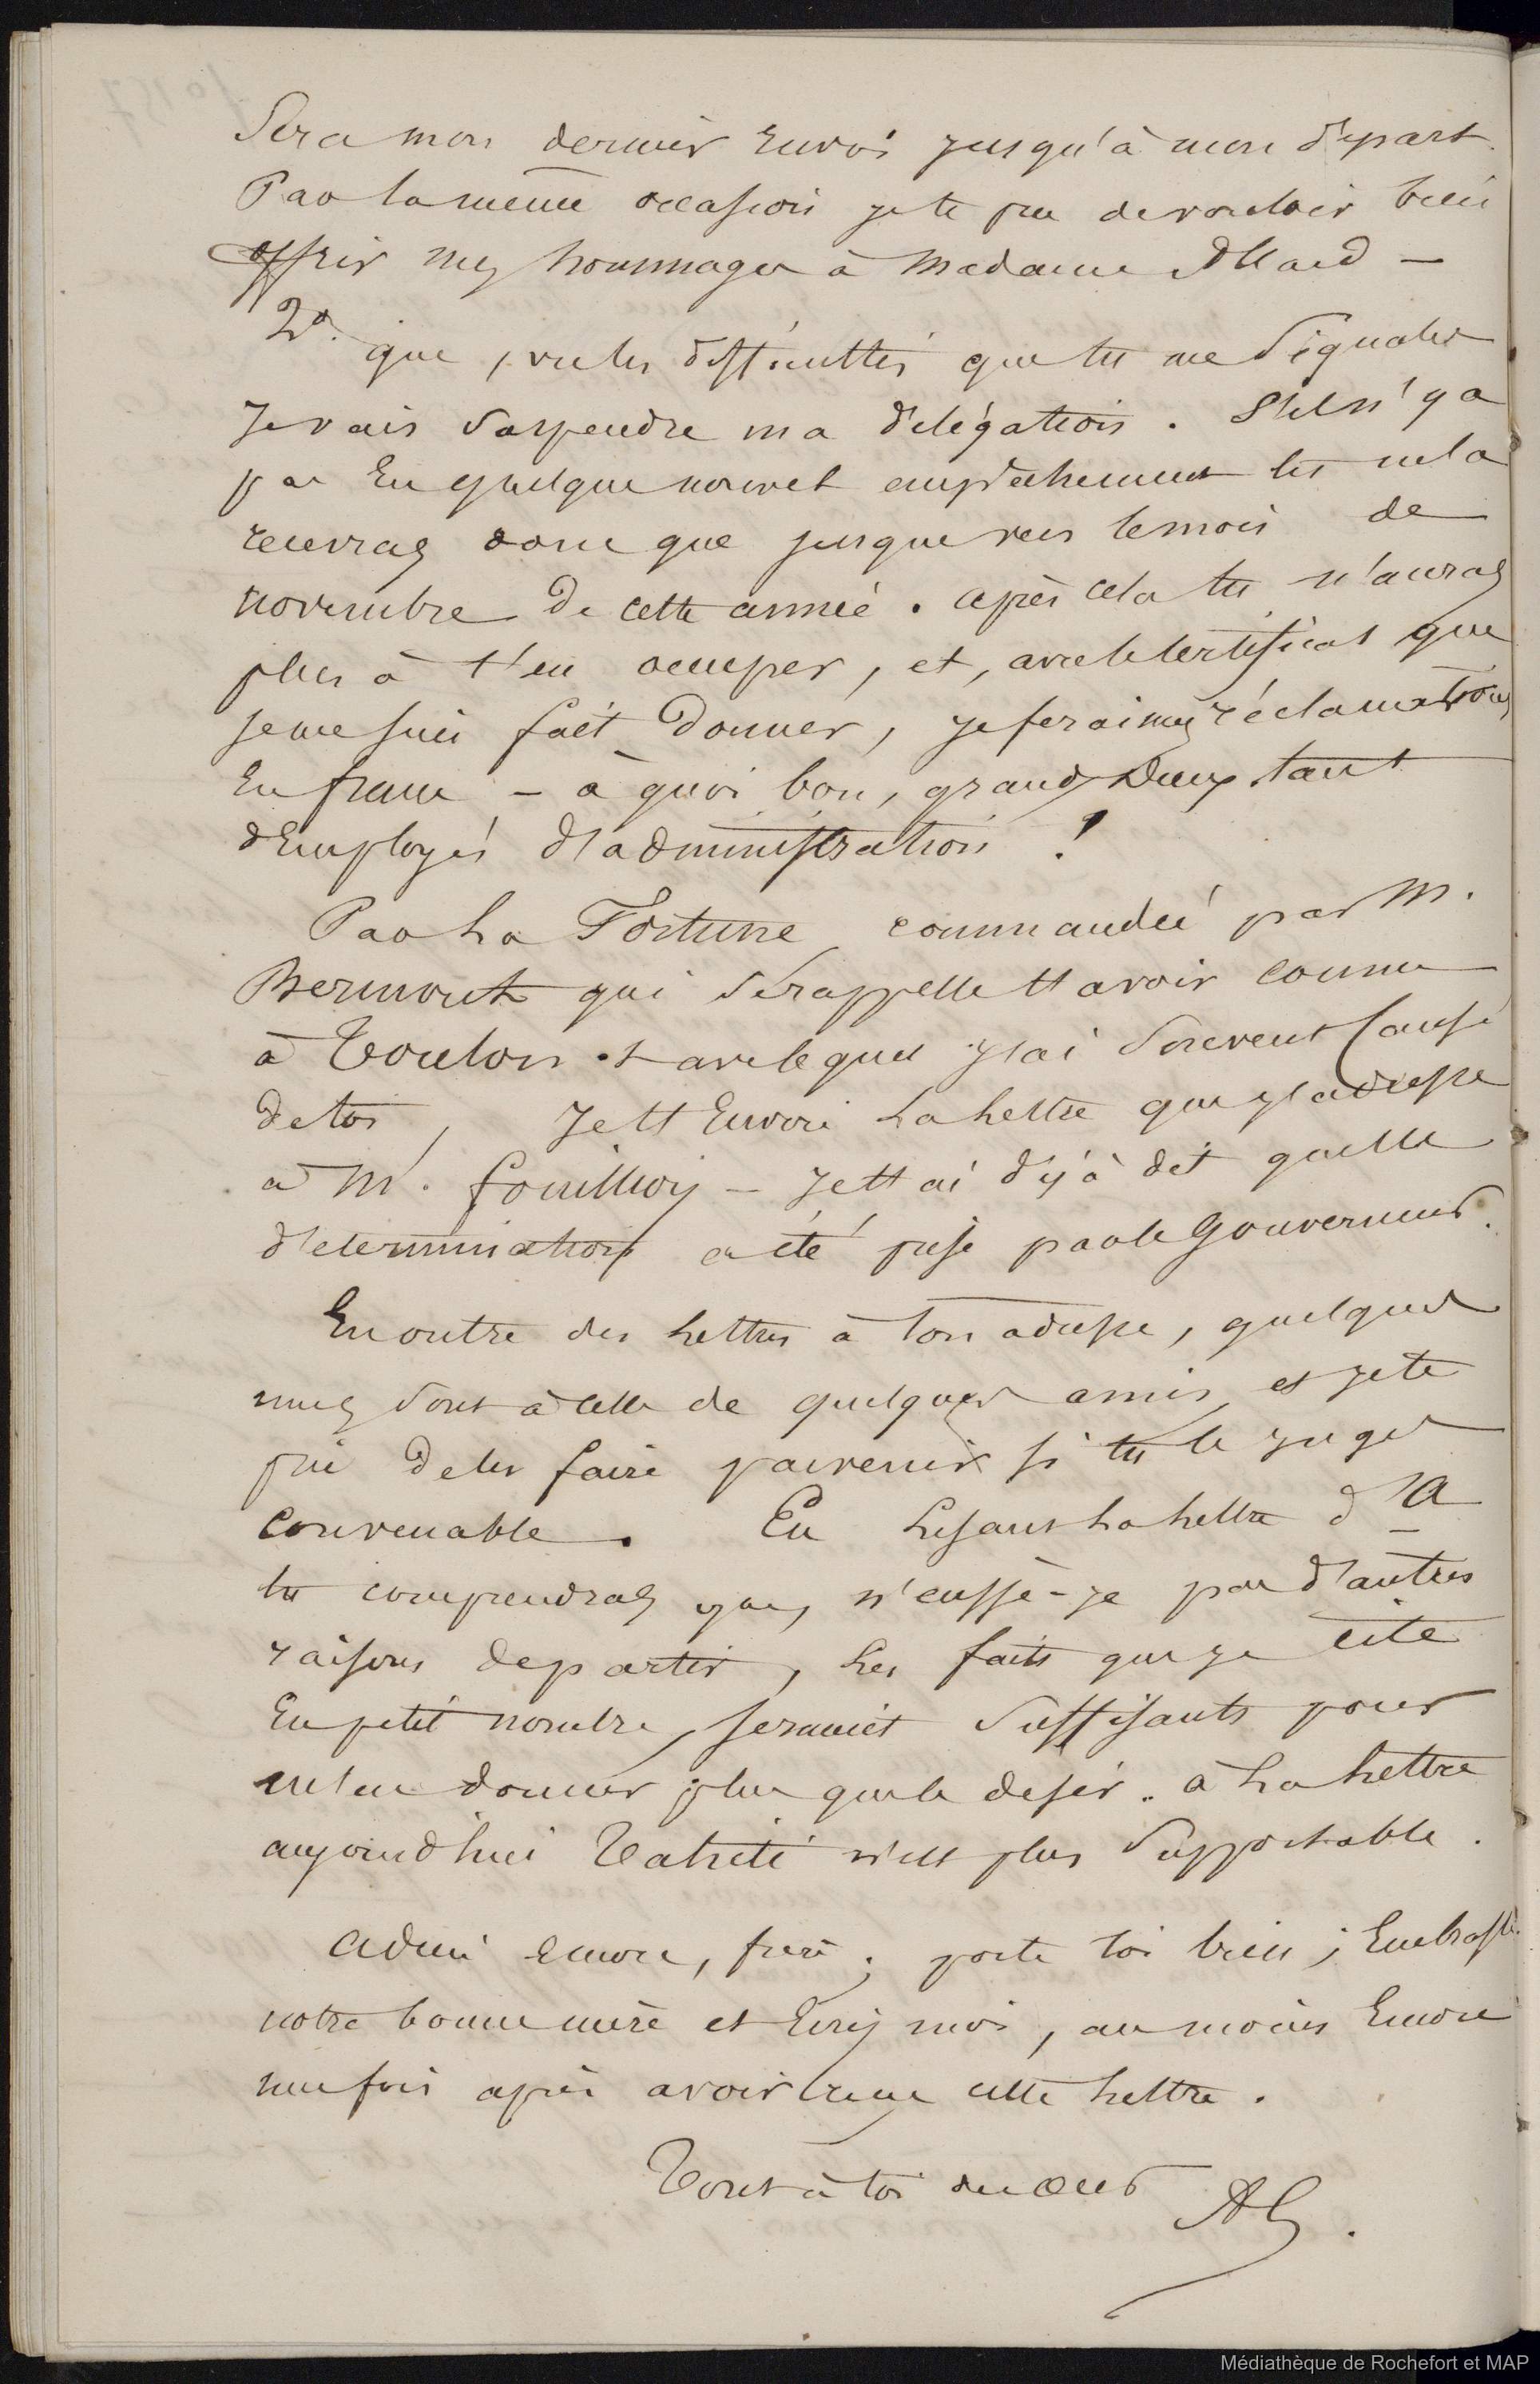 Sera mon dernier envoi jusqu'à mon départ.
Par la même occasion je te prie de vouloir bien
offrir mes hommages à Madame Allard —
2°. que, vu les difficultés que tu me signales
Je vais suspendre ma délégation. S'il n'y a
pas eu quelque nouvel empêchement tu ne la
recevras donc que jusque vers le mois de
novembre de cette année. après cela tu n'auras
plus à t'en occuper, et, avec le certificat que
je me suis fait donner, je ferai mes réclamations
En france — à quoi bon, grands Dieux, tant
d'Employés d'administration !
Par La Fortune commandée par M.
qui se rappelle t'avoir connu
à Toulon et avec lequel j'ai souvent causé
de toi, Je t'Envoie La Lettre que j'adresse
à M. — Je t'ai déjà dit quelle
détermination a été prise par le Gouverneur.
En outre des Lettres à ton adresse, quelques
unes sont à celle de quelques amis, et je te
prie de les faire parvenir si tu le juges
convenable. En Lisant La Lettre d'A
tu comprendras que, n'eussé-je pas d'autres
raisons de partir, Les faits que je cite
En petit nombre, seraient suffisants pour
m'en donner plus que le désir. à La Lettre
aujourd'hui Tahiti n'est plus supportable.
adieu encore, frère ; porte toi bien ; Embrasse
notre bonne mère et Ecris moi, au moins Encore
une fois après avoir reçu cette Lettre.
Tout à toi de cœur
AL.
Médiathèque de Rochefort et MAP